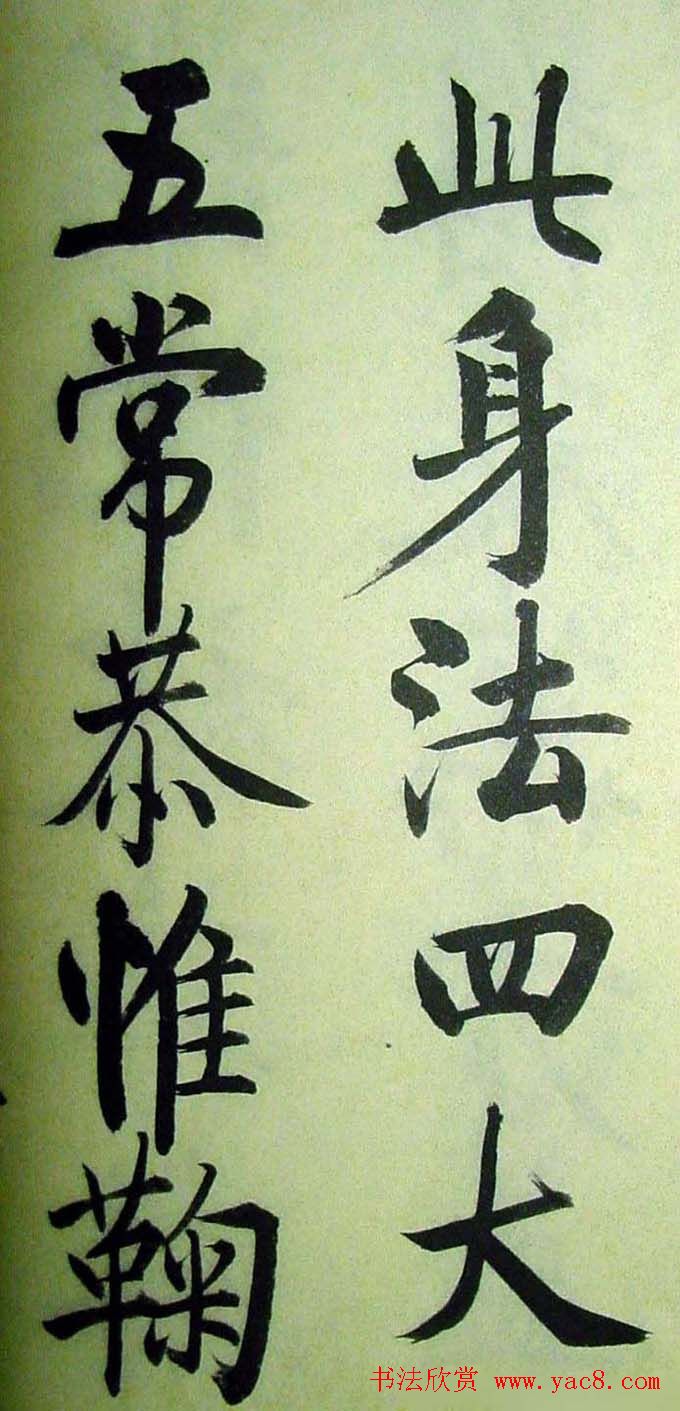 此身法四大
五常恭惟鞠
书法欣赏 www.yac8.com